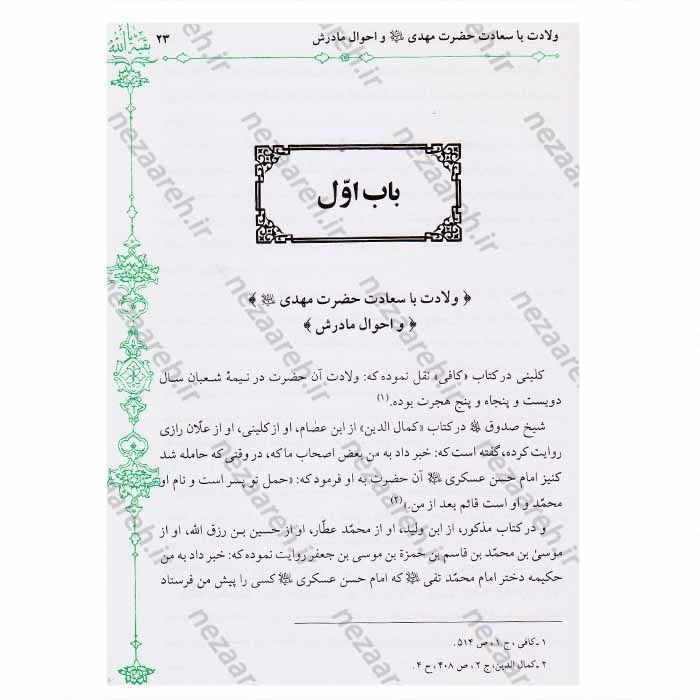 ولادت با سعادت حضرت مهدی ﷷ و احوال مادرش
۲۳
بقیة الله
باب اوّل
﴿ ولادت با سعادت حضرت مهدی ﴾
﴿ و احوال مادرش ﴾
کلینی در کتاب «کافی» نقل نموده که: ولادت آن حضرت در نیمهٔ شعبان سال
دویست و پنجاه و پنج هجرت بوده.(۱)
شیخ صدوق در کتاب «کمال الدین» از ابن عصام، او از کلینی، او از علّان رازی
روایت کرده، گفته است که: خبر داد به من بعض اصحاب ما که، در وقتی که حامله شد
کنیز امام حسن عسکری آن حضرت به او فرمود که: «حمل تو پسر است و نام او
محمّد و او است قائم بعد از من.»(۲)
و در کتاب مذکور، از ابن ولید، او از محمّد عطّار، او از حسین بن رزق الله، او از
موسیٰ بن محمّد بن قاسم بن حمزة بن موسی بن جعفر روایت نموده که: خبر داد به من
حکیمه دختر امام محمّد تقی که امام حسن عسکری کسی را پیش من فرستاد
۱ـ کافی، ج ۱، ص ۵۱۴.
۲ـ کمال الدین، ج ۲، ص ۴۰۸، ح ۴.
nezaareh.ir